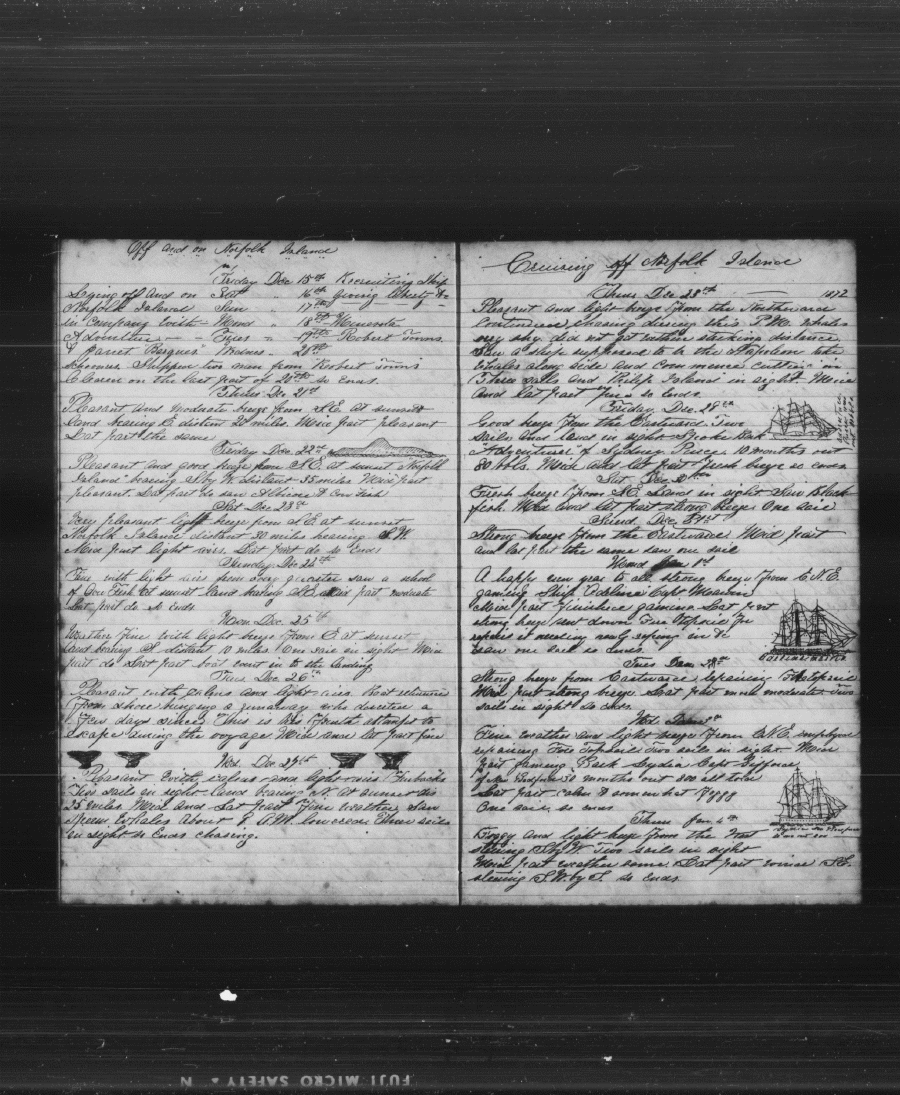 Off and on Norfolk Island
Friday Dec 15th Recruiting Ship
Laying off and on Sat " 16th
Norfolk Island Sun " 17th
in Company with Mond " 18th Minerva
Adventure - - Tues " 19th Robert Towns
& Barque Wednes " 20th
Schooner Shipped two men from Robert Towns
on the last part of 20th so Ends
Thurs Dec 21st
Pleasant and moderate breeze from S.E. at sunset
land bearing E distant 20 miles. Mid part pleasant
Last part the same
Friday Dec. 22nd
Pleasant and good breeze from S.E. at sunset Norfolk
Island bearing by W. distant 35 miles Mid part
pleasant Last part do saw Albion & Cow Fish
Sat Dec 23rd
Very pleasant light breeze from S.E at sunset
Norfolk Island distant 30 miles bearing S.W.
Mid part light airs. Last part do so Ends
Sunday Dec 24th
Fine with light airs from every quarter saw a school
of Cow Fish at sunset land bearing S.E. Mid part moderate
Last part do so Ends
Mon Dec. 25th
Weather Fine with light breeze from E. at sunset
land bearing S distant 10 miles One sail in sight Mid
part do Last part boat went in to the landing
Tues Dec. 26th
Pleasant with calms and light airs. Boat returned
From shore bringing a runaway who deserted a
Few days since This is his Fourth attempt to
Escape during the voyage Mid and last part fine
Wed. Dec. 27th
Pleasant with calms and light airs Finbacks
Two sails in sight land bearing N. at sunset dis
25 miles Mid and Last part Fine weather saw
Sperm Whales about 8 A.M. lowered Three sails
in sight so Ends chasing.
Cruising off Norfolk Island
Thurs Dec 28th 1872
Pleasant and light breeze From the Northward
Continued chasing during this P.M. Whales
very shy did not get within striking distance
Saw a ship supposed to be the Napoleon take
Whales along side and commence cutting in
Three sails and Philip Island in sight Mid
and last part fine so Ends
Friday Dec. 29th
Good breeze From the Eastward Two
sails and land in sight Spoke Bark
"Adventure" of Sydney 10 months out
80 bbls. Mid and last part fresh breeze so ends
Sat Dec 30th
Fresh breeze From S.E Land in sight Saw Black
fish. Mid and last part strong breeze One sail
Sund. Dec 31st
Strong breeze From the Eastward Mid part
and last part the same saw one sail
Mond Jan 1st
A happy new year to all strong breeze From E.N.E.
gaming Ship Ocelina Capt
Mid part Finished gaming Last part
strong breeze sent down Fore Topsail
saw one sail so Ends.
Tues Jan 2nd
Strong breeze from Eastward repairing Topsail
Mid part strong breeze Last part more moderate two
sails in sight so ends
Wed Jan 3rd
Fine weather and light breeze From employed
repairing Fore Topsail Two sails in sight. Mid
part gaming Bark Lydia Capt
of New Bedford 30 months out 800 all told
Last part calm & somewhat Foggy
One sail so ends
Thurs Jan 4th
Foggy and light breeze From the
steering S by W. Two sails in sight
Mid part weather same Last part S.E.
steering S.W. by S. so Ends
FUJI MICRO SAFETY ▲ N